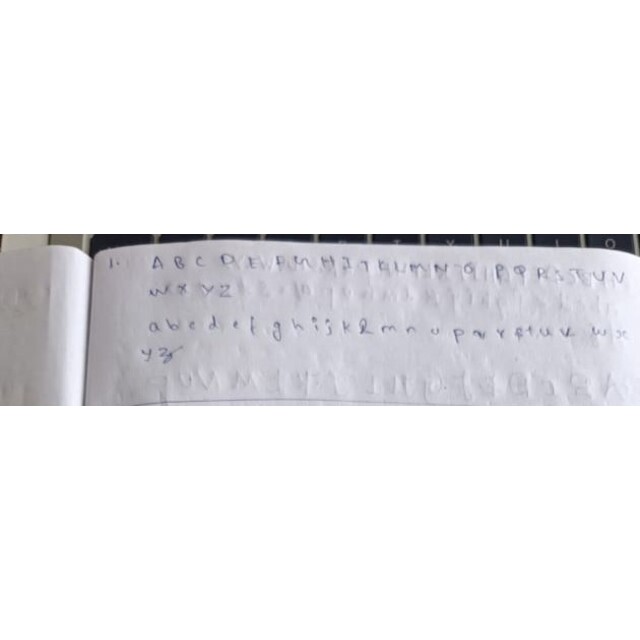 1. A B C D E F G H I J K L M N O P Q R S T U V
W X Y Z
a b c d e f g h i j k l m n o p q r s t u v w x
y z